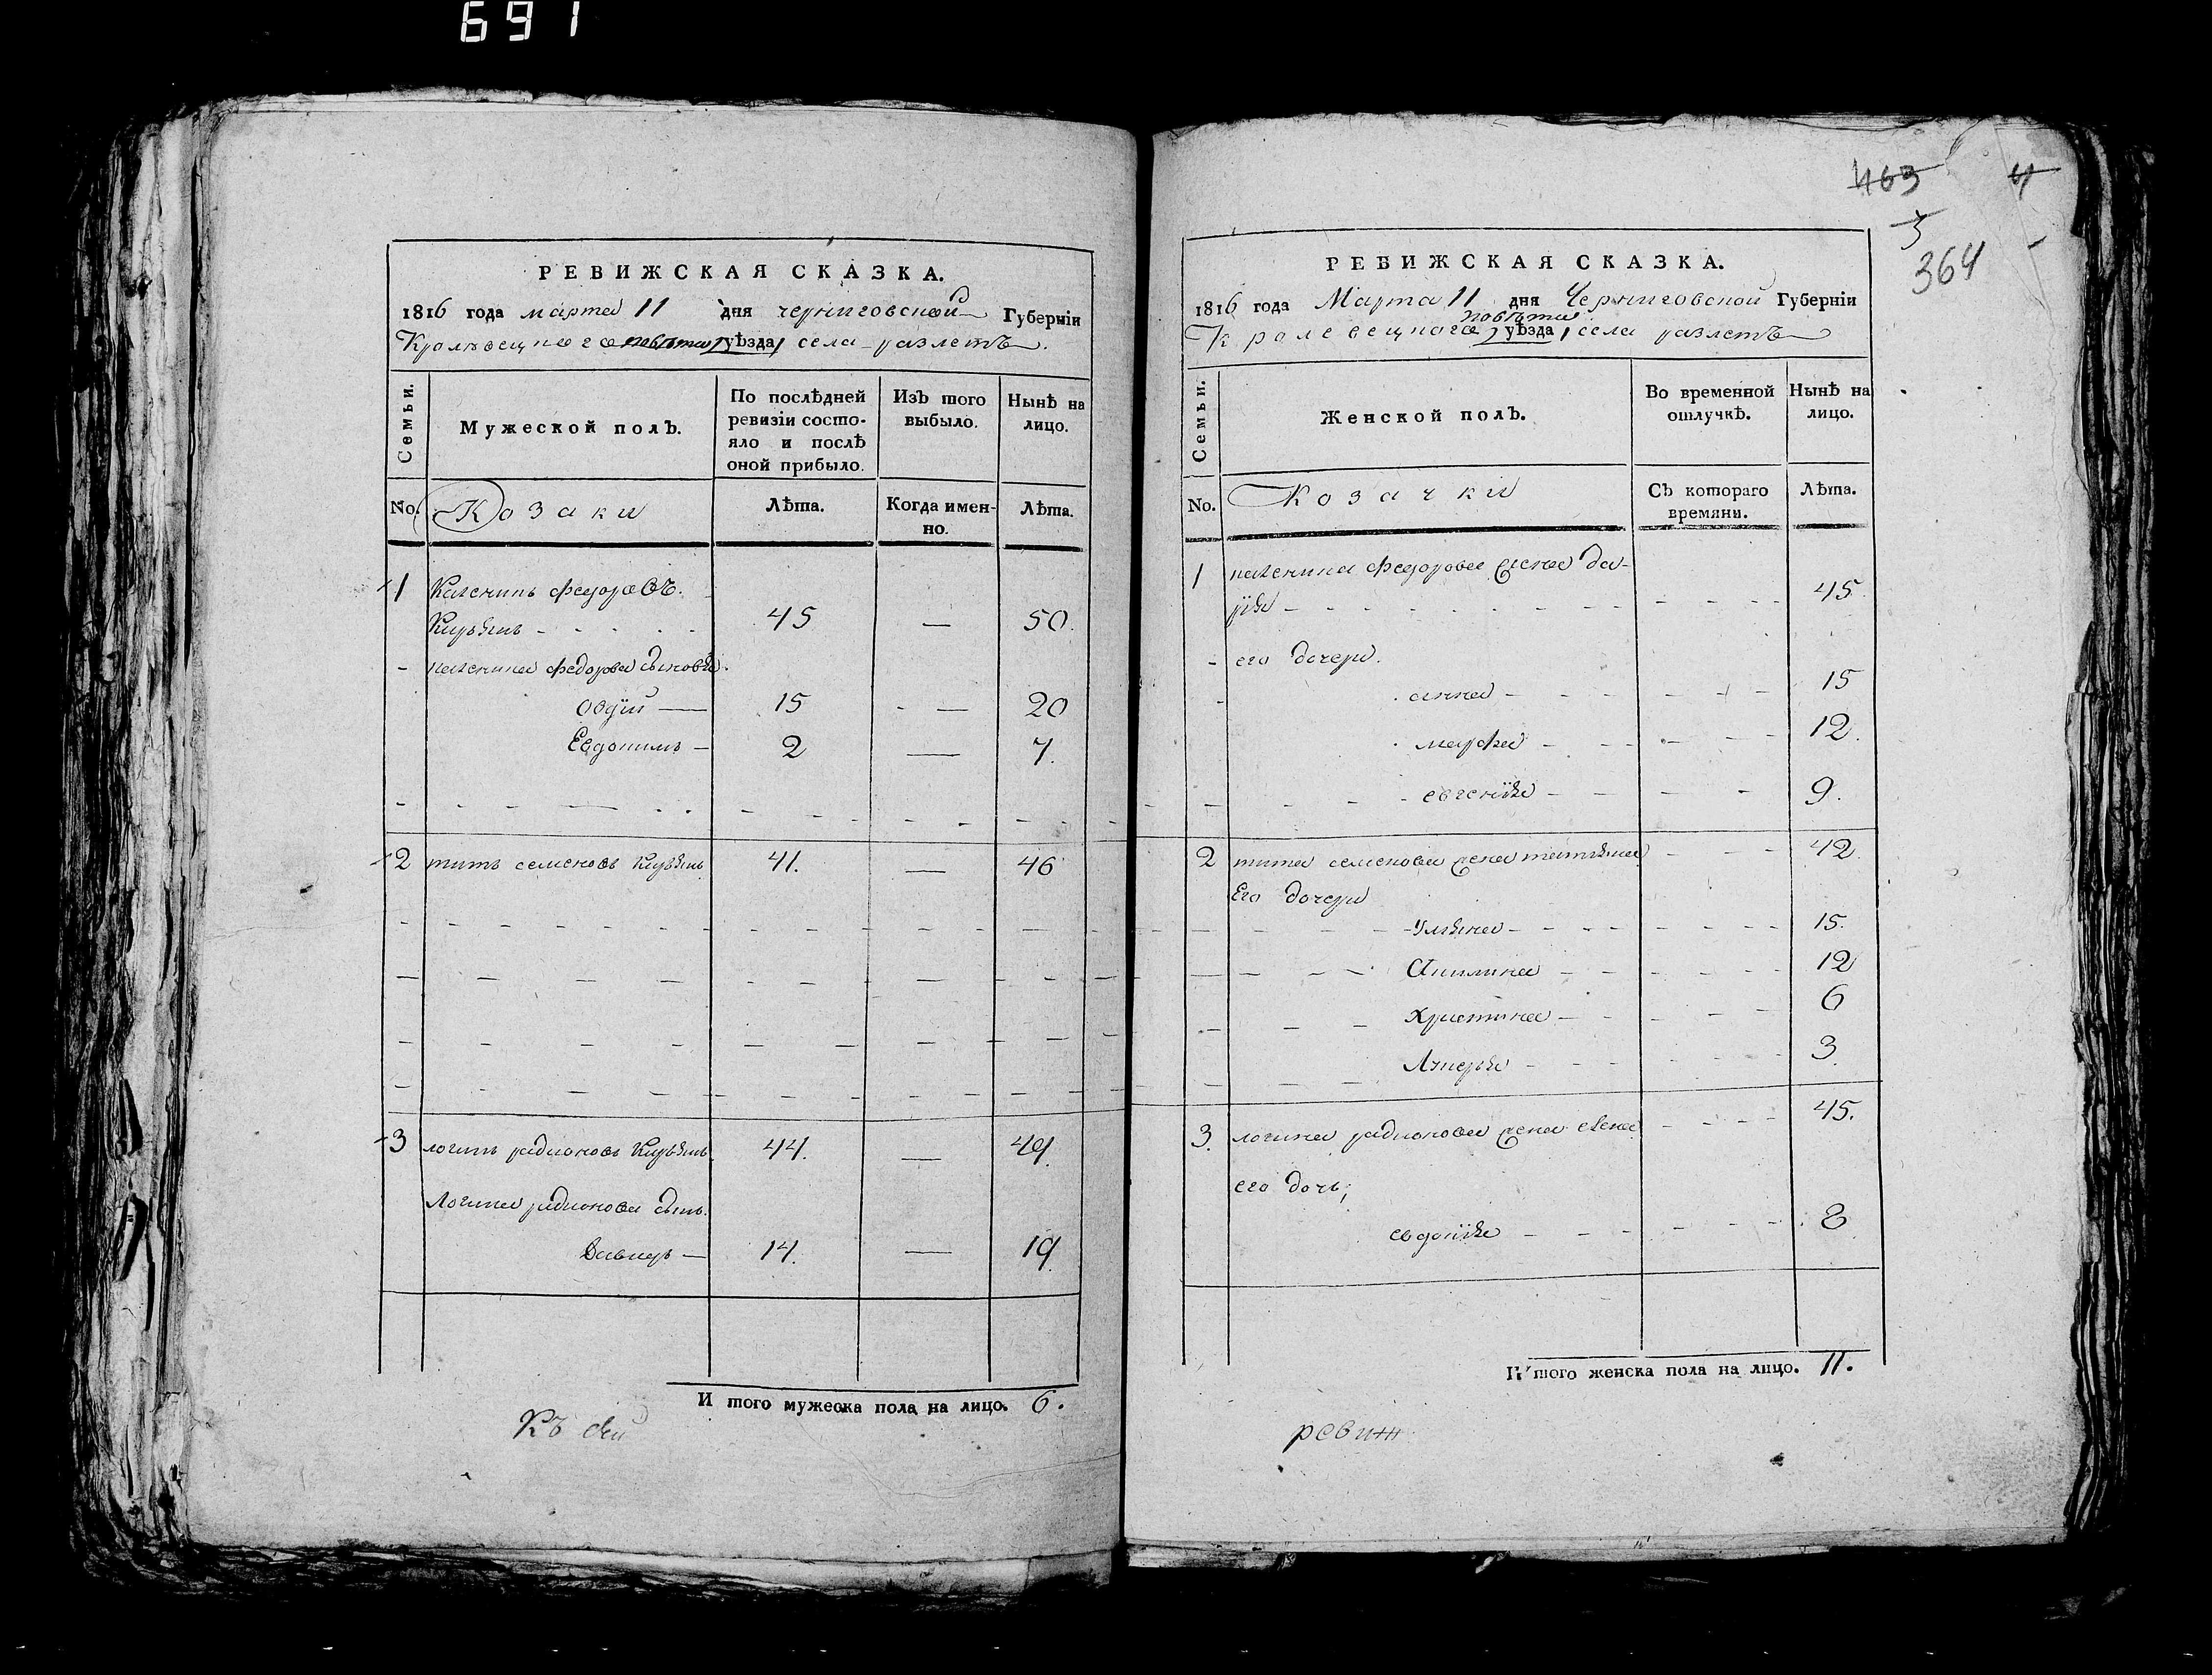 691
РЕВИЖСКАЯ СКАЗКА.
1816 года марта 11 дня черниговской Губерніи
Кролевецкаго повѣта уѣзда, села разлетъ
Семьи.
Мужеской полъ.
По послѣдней ревизіи состояло и послѣ оной прибыло.
Изъ того выбыло.
Нынѣ на лицо.
No.
Козаки
Лѣта.
Когда именно.
Лѣта.
1 Каленикъ федоровъ.
45 — 50.
- каленика федорова сыновѣя
15 — 20
2 — 7.
2 титъ семеновъ 41. — 46
3 логинъ радионовъ 44. — 49.
Логина радионова сынъ.
Давидъ — 14. — 19.
И того мужеска пола на лицо. 6.
Къ сей
463
4
3
364
РЕВИЖСКАЯ СКАЗКА.
1816 года Марта 11 дня Черниговской Губерніи
повѣта
Кролевецкаго уѣзда, села разлетъ
Семьи.
Женской полъ.
Во временной отлучкѣ.
Нынѣ на лицо.
No.
Козачки
Съ котораго времяни.
Лѣта.
1 каленика федорова жена да-
рія 45.
- его дочери.
анна 15
марфа 12.
евгенія 9.
2 тита семенова жена татіяна 42.
Его дочери
Уліяна 15.
Акилина 12
Христина 6
3.
3. логина радионова жена елена 45.
его дочь,
евдокія 8
И того женска пола на лицо. 11.
ревиж